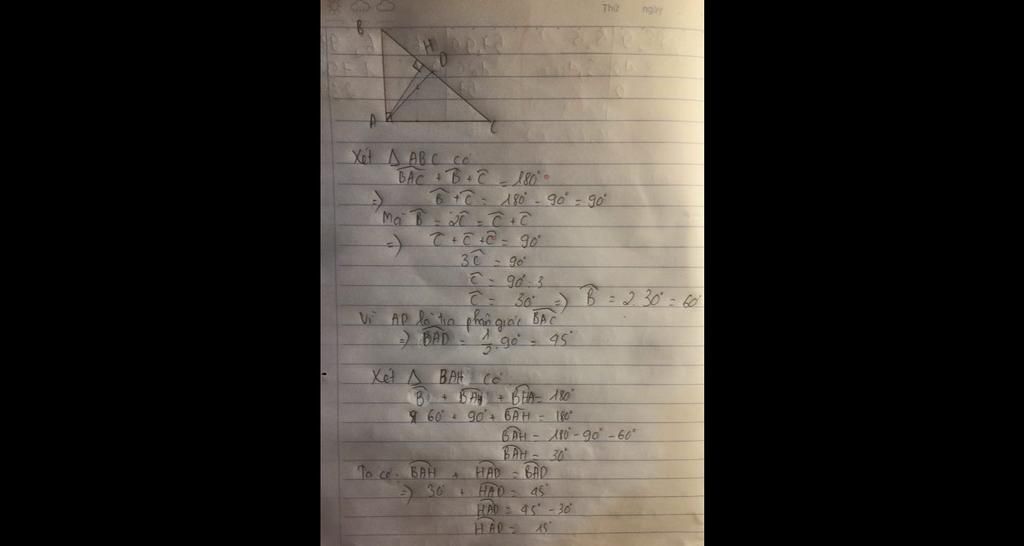 Thứ ngày
B
H
D
A
C
Xét Δ ABC có
BAC + B + C = 180°
=) B + C = 180° - 90° = 90°
Mà B = 2C = C + C
=) C + C + C = 90°
3C = 90°
C = 90 : 3
C = 30° =) B = 2.30° = 60°
Vì AD là tia phân giác BAC
=) BAD = 1/2 . 90° = 45°
Xét Δ BAH có
B + BAH + BHA = 180°
60° + 90° + BAH = 180°
BAH = 180° - 90° - 60°
BAH = 30°
Ta có BAH + HAD = BAD
=) 30° + HAD = 45°
HAD = 45° - 30°
HAD = 15°